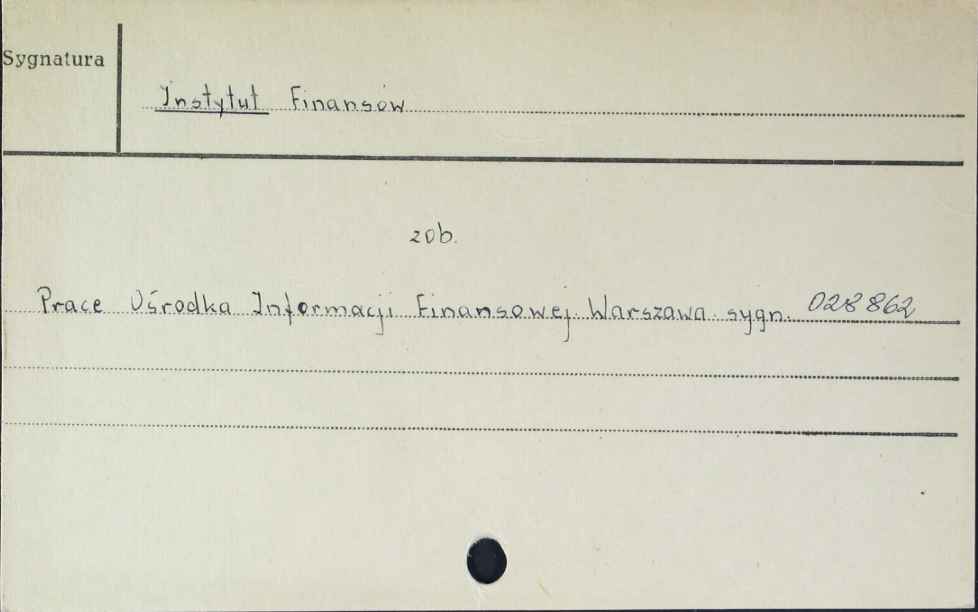 Sygnatura
Instytut Finansów
zob.
Prace Ośrodka Informacji Finansowej Warszawa sygn. 028862